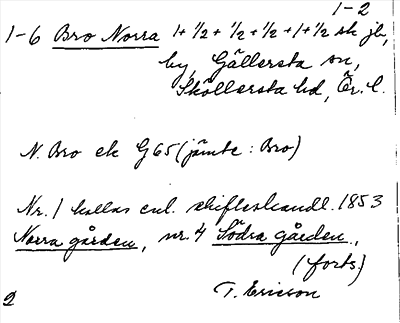 1-2
1-6 Bro Norra 1+1/2+1/2+1/2+1+1/2 sk jb,
by, Gällersta sn,
Sköllersta hd, Ör. l.
N. Bro ek G65 (jämte: Bro)
Nr. 1 kallas enl. skifteshandl. 1853
Norra gården, nr. 4 Södra gården,
(forts.)
T. Ericson